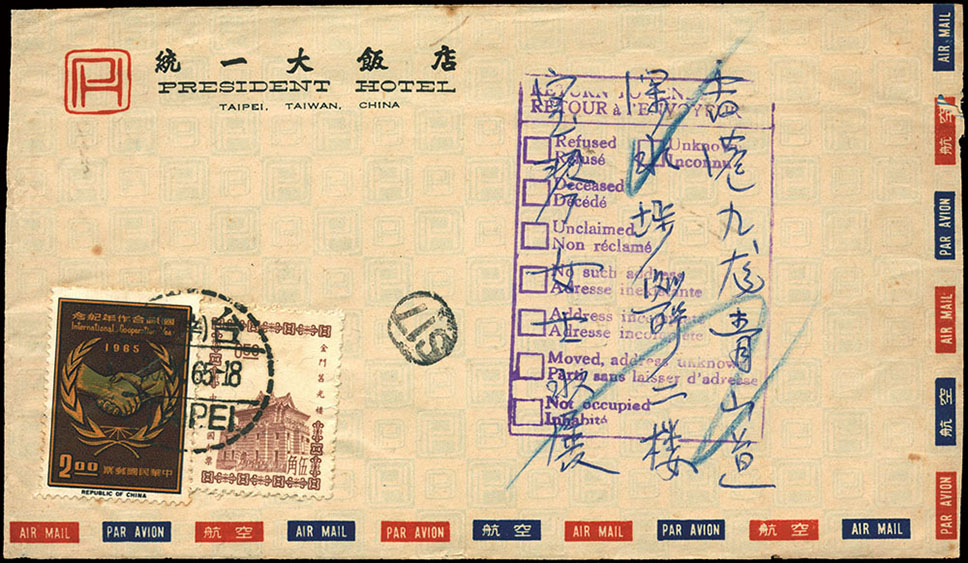 統一大飯店
PRESIDENT HOTEL
TAIPEI, TAIWAN, CHINA
RETURN TO SEN
RETOUR à l'ENVOYEUR
Refused
Refusé
Unknown
Inconnu
Deceased
Décédé
Unclaimed
Non réclamé
No such address
Adresse inexistante
Address incomplete
Adresse incomplete
Moved, address unknown
Parti sans laisser d'adresse
Not occupied
Inhabité
香港九龙青山道
深水埗
二楼
女士
國際合作年紀念
International Cooperation Year
1965
2.00
中華民國郵票
REPUBLIC OF CHINA
0.50
金門莒光樓
伍角
65.-18
PEI
517
AIR MAIL
航空
PAR AVION
AIR MAIL
航空
PAR AVION
AIR MAIL PAR AVION 航空 AIR MAIL PAR AVION 航空 AIR MAIL PAR AVION 航空 AIR MAIL